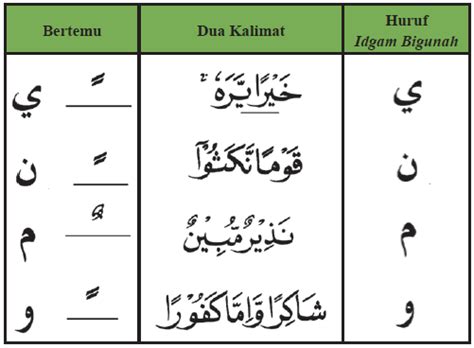 Bertemu Dua Kalimat Huruf
Idgam Bigunah
ـً ي خَيْرًا يَّرَهٗ ي
ـً ن قَوْمًا نَّكَثُوْٓا ن
ـٌ م نَذِيْرٌ مُّبِيْنٌ م
ـً و شَاكِرًا وَّاِمَّا كَفُوْرًا و